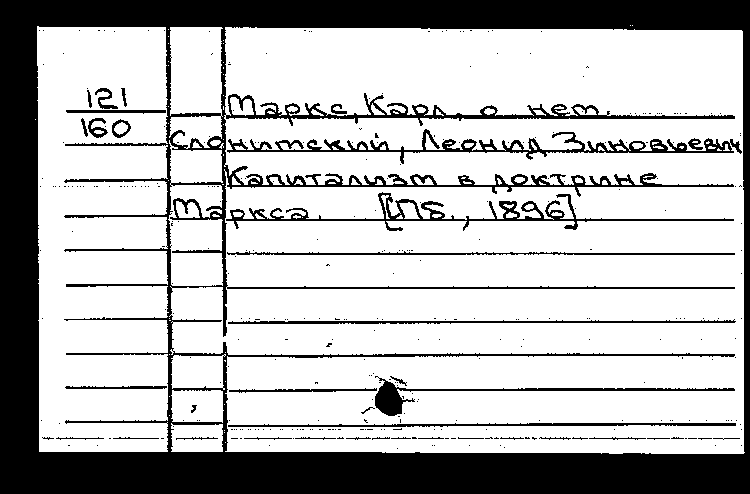 121 Маркс, Карл, о нем.
160 Слонитский, Леонид Зиновьевич
Капитализм в доктрине
Маркса. [СПб., 1896]